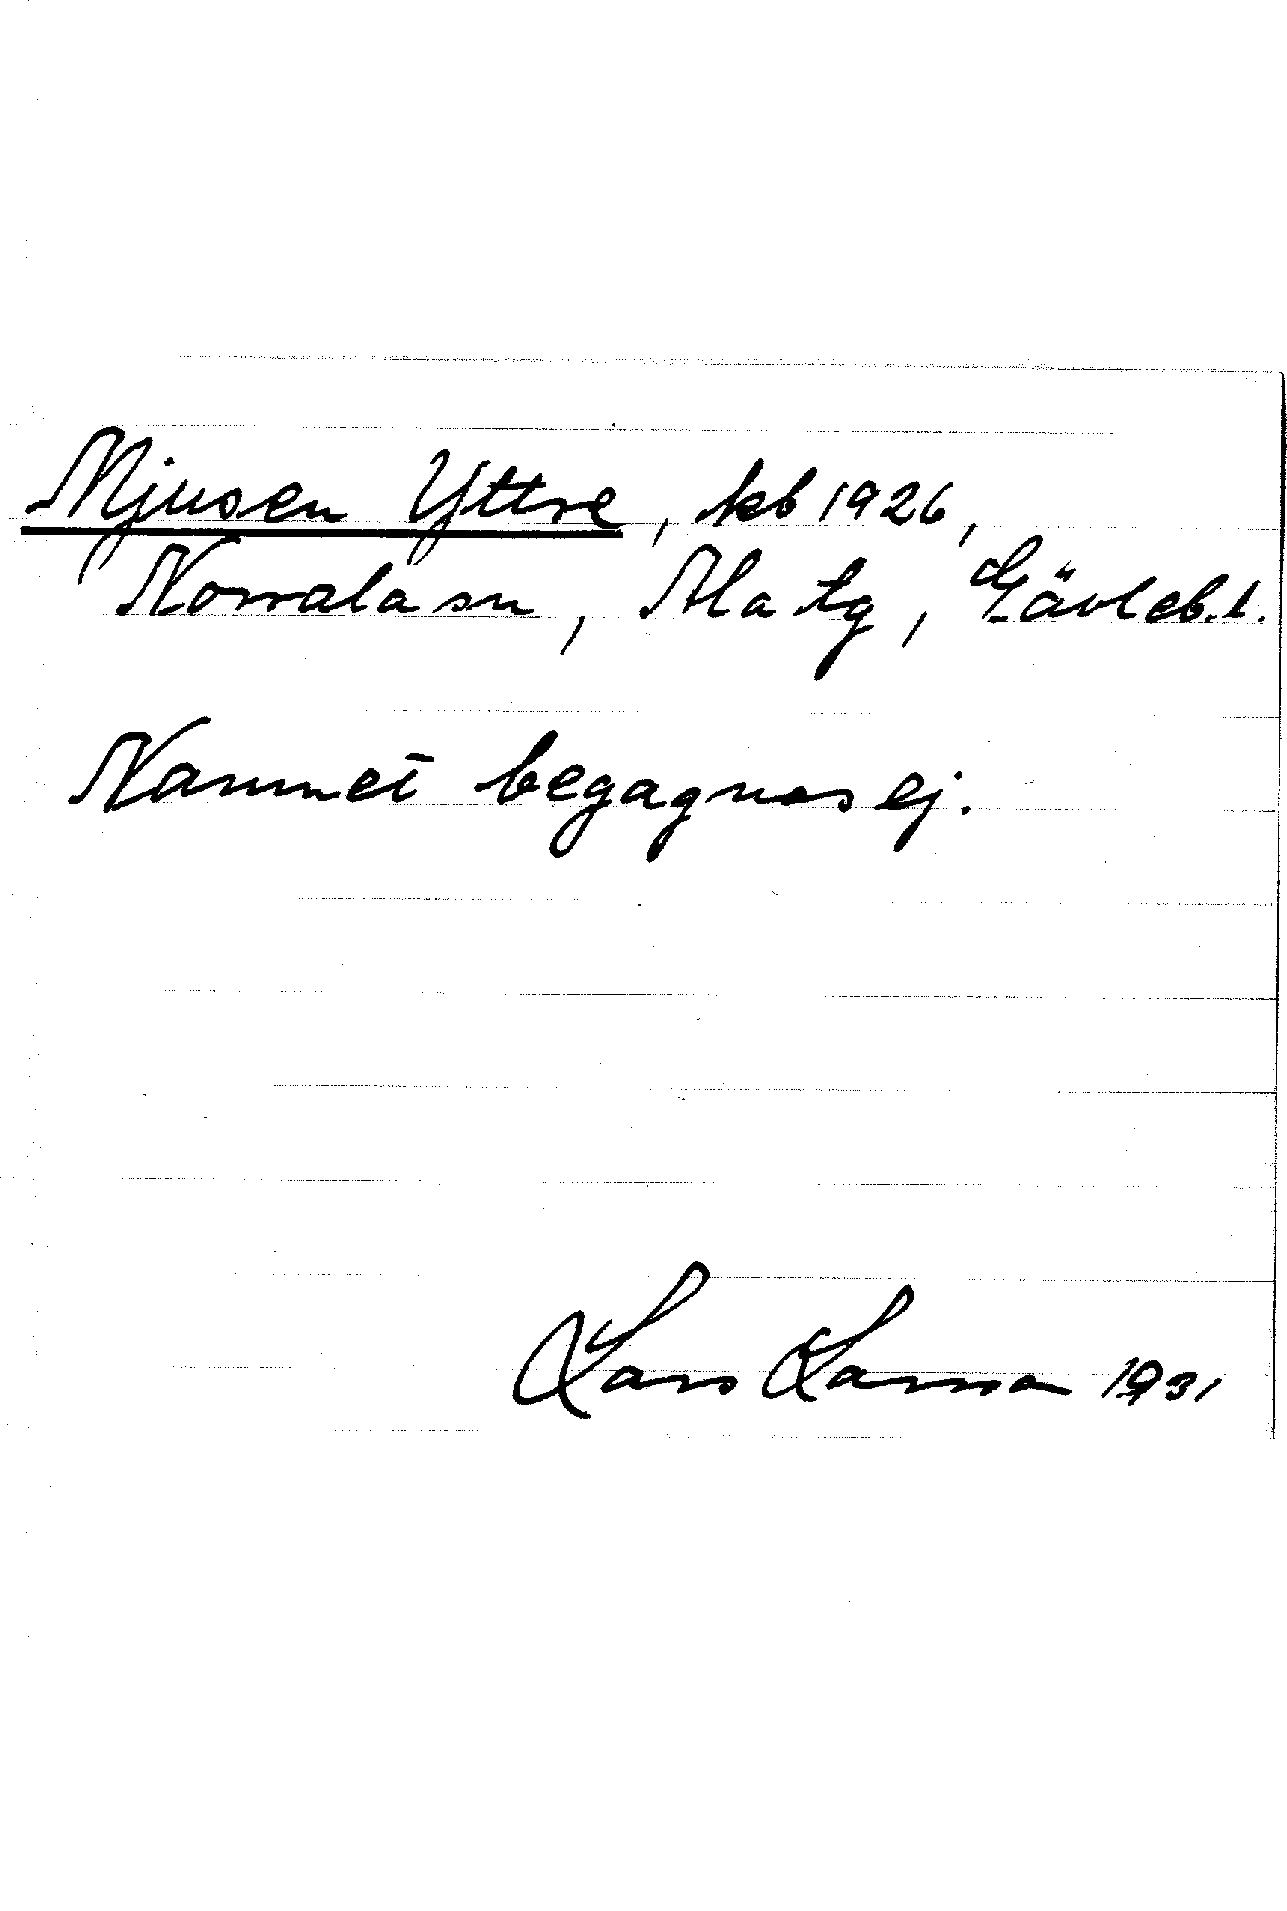 Mjusen Yttre, kb 1926,
Norrala sn, Ala tg, Gävleb. l.
Namnet begagnas ej.
Lars Larsson 1931